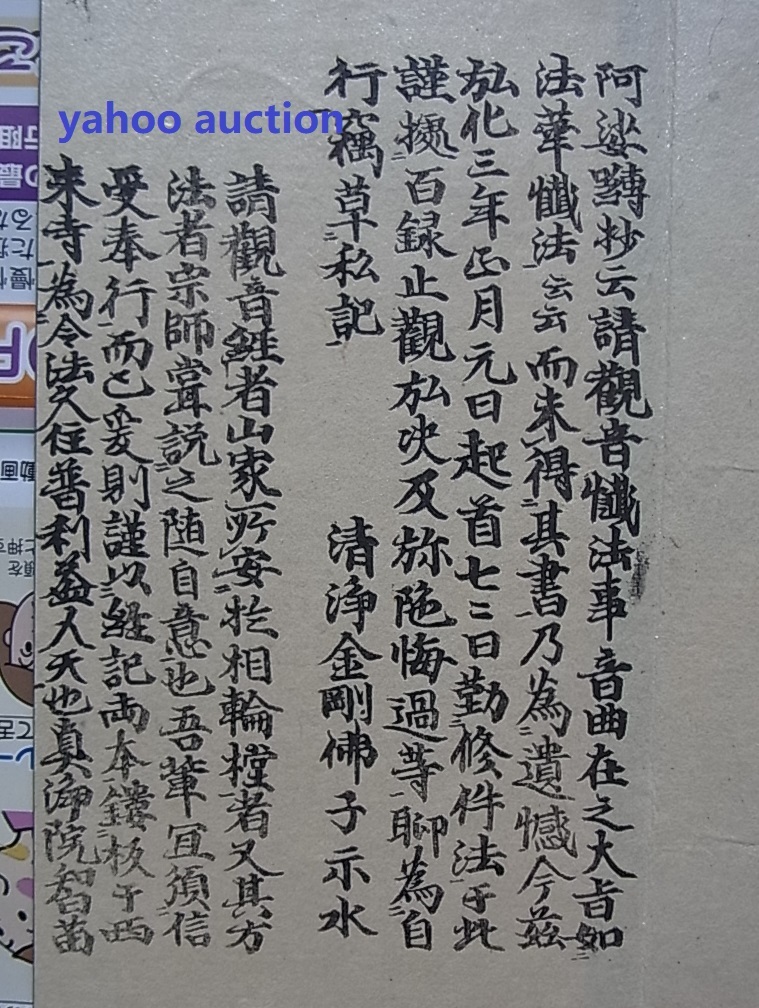 阿娑縛抄云請觀音懺法事音曲在之大旨如
法華懺法云云而未得其書乃為遺憾今茲
弘化三年正月元日起首七二日勤修件法于此
謹攄百録止觀弘决及旀陁悔過等聊為自
行竊草私記
清淨金剛佛子示水
請觀音經者山家所安於相輪樘者又其方
法者宗師嘗説之随自意也吾輩宜須信
受奉行而已爰則謹以經記両本鏤板于西
来寺為令法久住普利益人天也真浄院智苗
yahoo auction